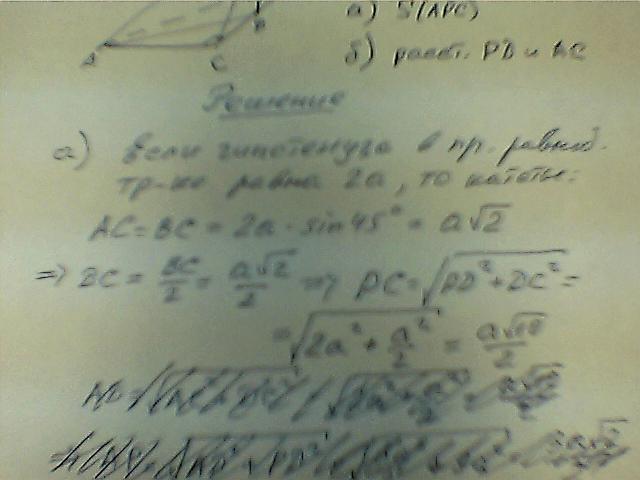 а) S(APC)
A
C
B
б) расст. PD и AC
Решение
а) если гипотенуза в пр. равноб.
тр-ке равна 2a, то катеты:
AC = BC = 2a · sin 45° = a√2
=> DC = BC/2 = a√2/2 => PC = √(PD² + DC²) =
= √(2a² + a²/2) = a√10/2